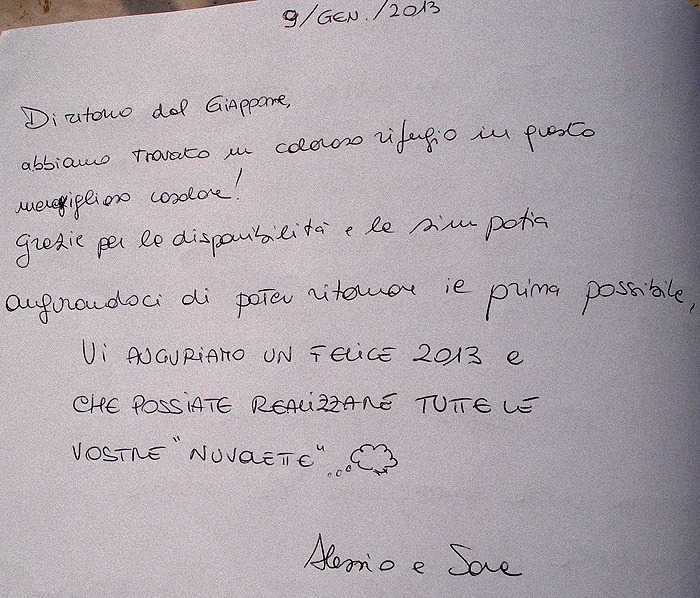 9/GEN./2013
Di ritorno dal GIAPPONE,
abbiamo TROVATO un caloroso rifugio in questo
meraviglioso casolare!
Grazie per la disponibilità e la simpatia
augurandoci di poter ritornare il prima possibile,
Vi AUGURIAMO UN FELICE 2013 e
CHE POSSIATE REALIZZARE TUTTE LE
VOSTRE "NUVOLETTE"...
Alessio e Sara